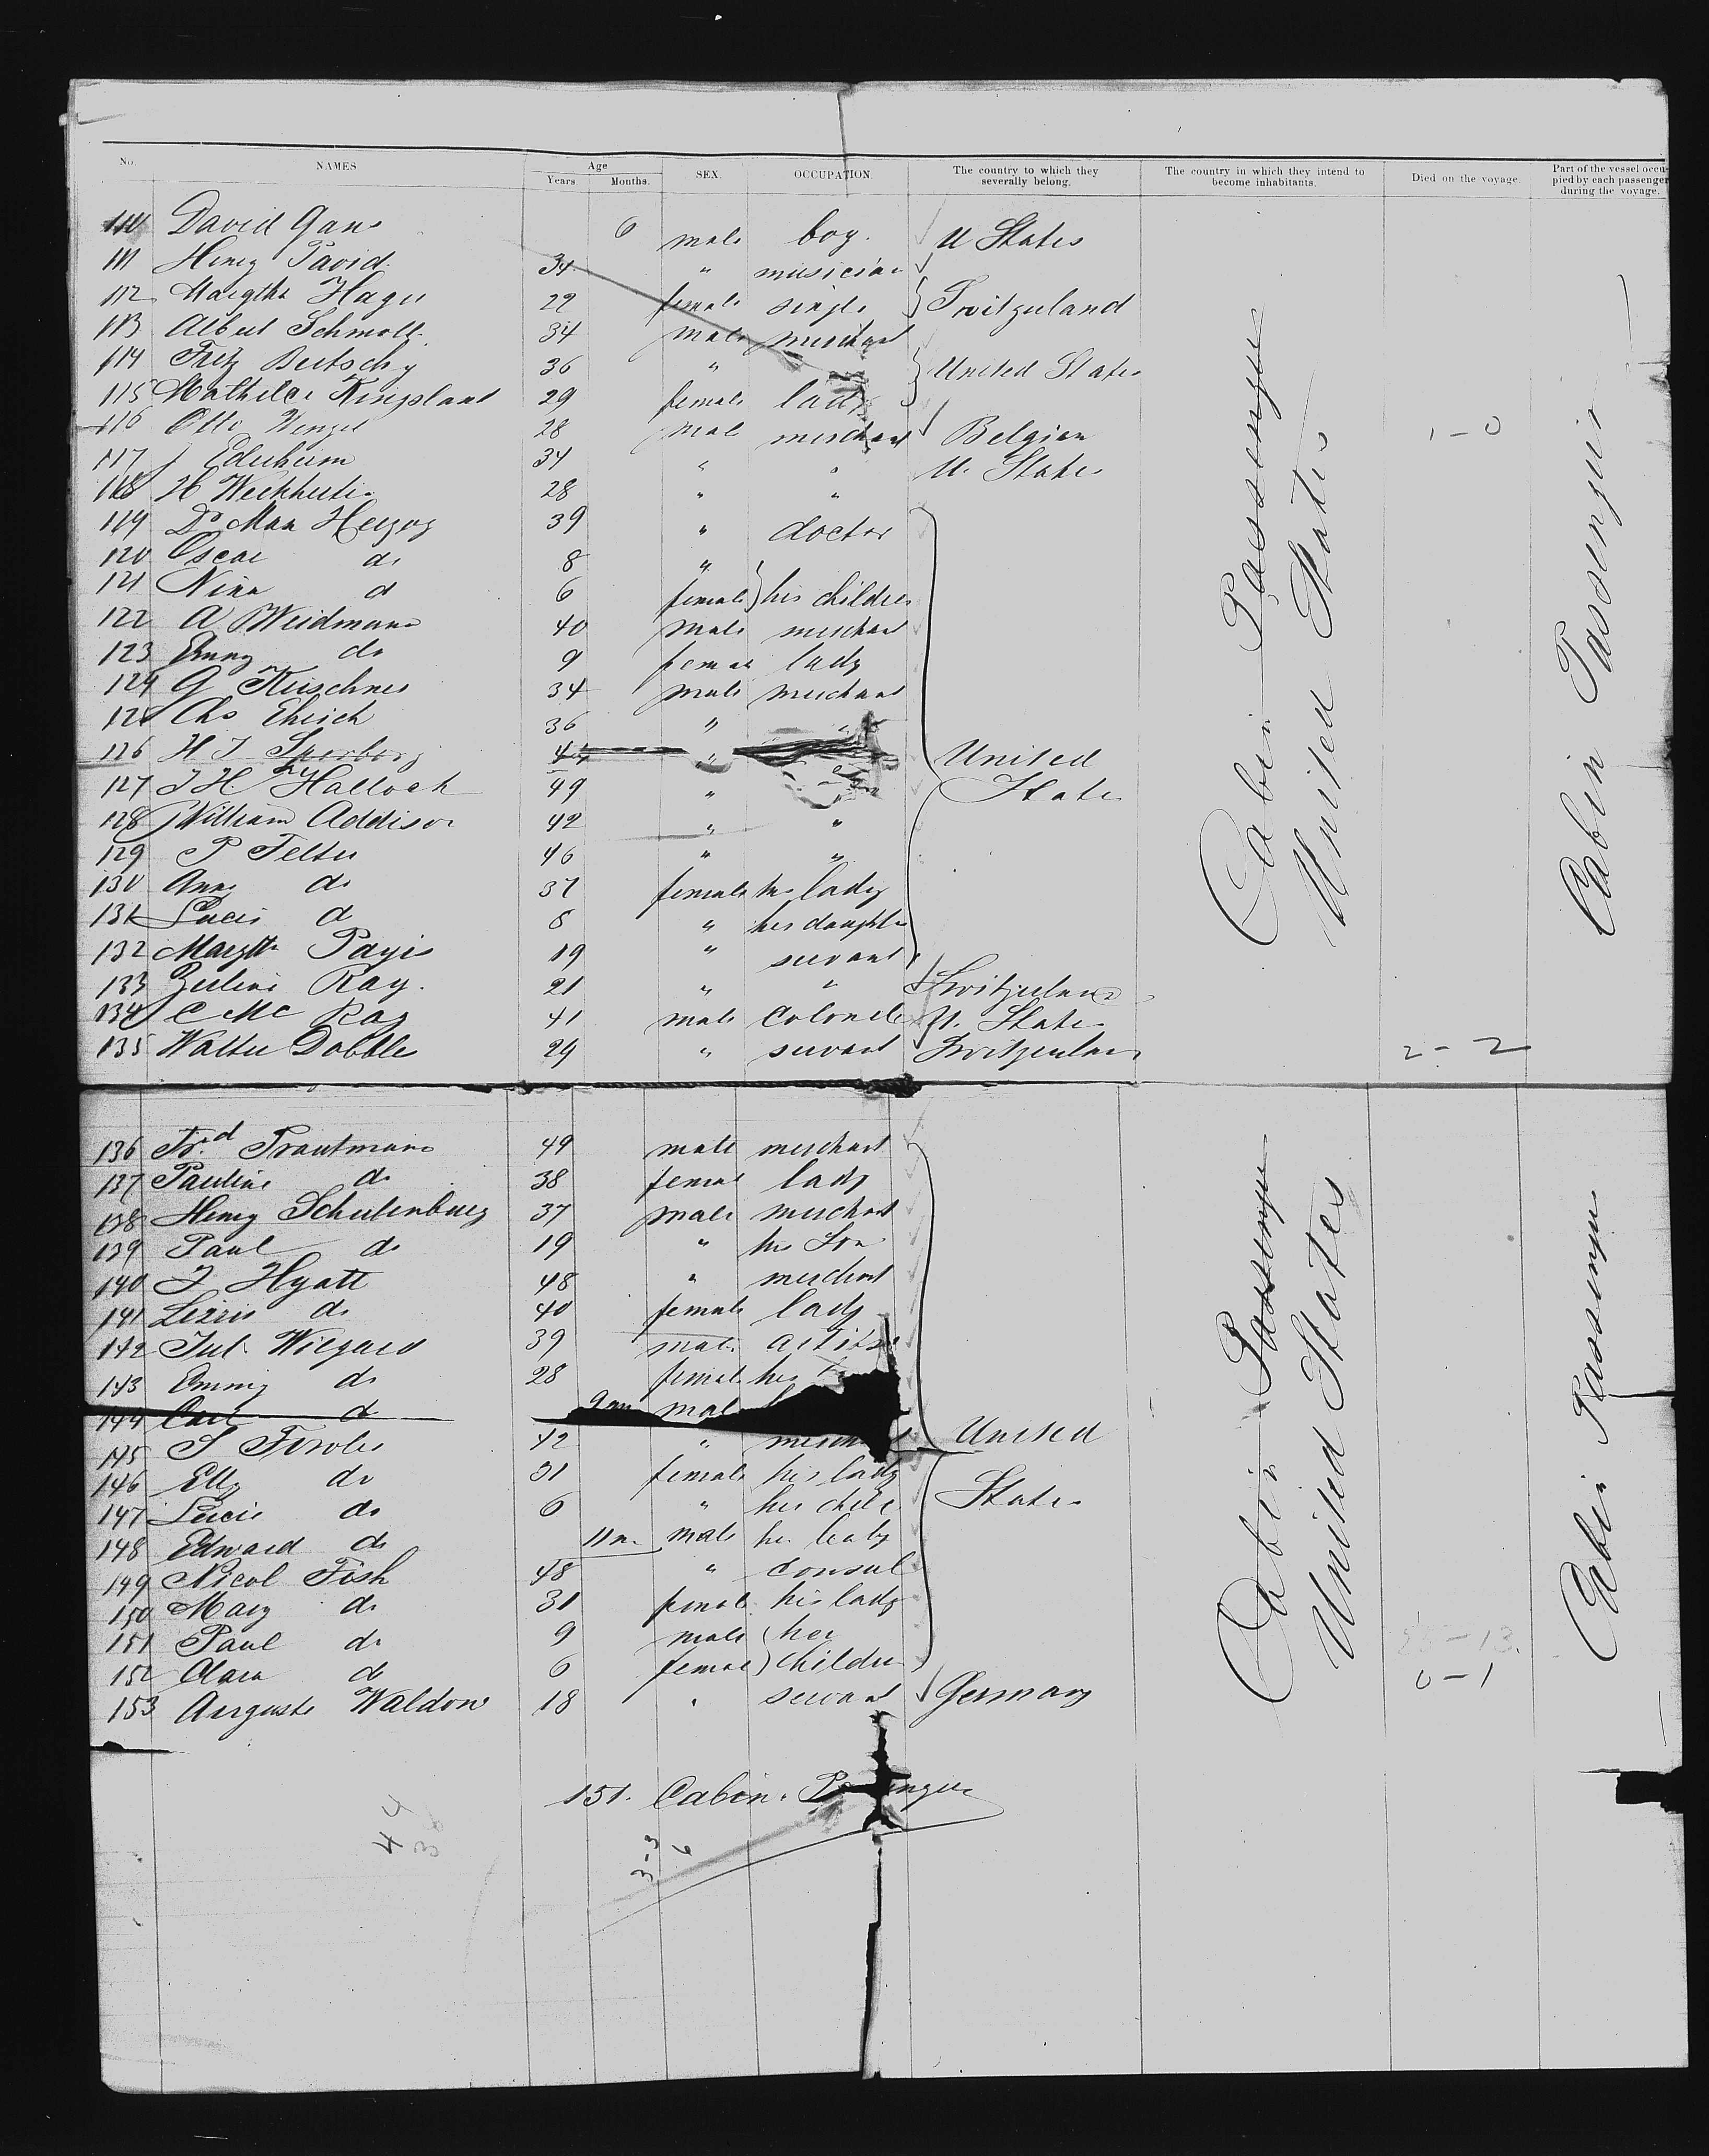 No. NAMES Age Years Months. SEX. OCCUPATION. The country to which they severally belong. The country in which they intend to become inhabitants. Died on the voyage. Part of the vessel occupied by each passenger during the voyage.
110 David Gans 6 male boy. U States
111 Henry David 34 " musician
112 Margtha Hager 22 female single Switzerland
113 Albert Schmoll 34 male merchant
114 Fritz Bertschy 36 " United States
115 Mathilde Kingsland 29 female lady
116 Otto Wenzel 28 male merchant Belgian 1-0
117 J Ederheim 34 " " U. States
118 H Weckherlin 28 " "
119 Dr Max Herzog 39 " doctor
120 Oscar do 8 "
121 Nina do 6 female his children
122 A Weidmann 40 male merchant
123 Emmy do 9 female lady
124 G Kirschner 34 male merchant
125 Chs Ehrich 36 " "
126 H I Sperborg 44 " United
127 J H. Hallock 49 " States
128 William Addison 42 " "
129 P Felter 46 " "
130 Anny do 37 female his lady
131 Lucie do 8 " her daughter
132 Margth Payis 19 " servant
133 Zeline Ray. 21 " " Switzerland
134 C Mc Ray 41 male Colonel U. States
135 Walter Dobble 24 " servant Switzerland 2-2
Cabin Passenger
United States
Cabin Passenger
136 Frd. Trautmann 49 male merchant
137 Pauline do 38 female lady
138 Henry Schulenburg 37 male merchant
139 Paul do 19 " his Son
140 J Hyatt 48 " merchant
141 Lizzie do 40 female lady
142 Jul. Wiegand 39 male artist
143 Emmy do 28 female his
144 Carl do 9 m male
145 S Fowler 42 " merchant United
146 Elly do 31 female his lady
147 Lucie do 6 " her child States
148 Edward do 11 m. male her baby
149 Nicol Fish 48 " Consul
150 Mary do 31 female his lady
151 Paul do 9 male her
152 Clara do 6 female children 0-1
153 Auguste Waldow 18 " servant Germany
Cabin Passenger
United States
Cabin Passenger
151. Cabin. Passenger
3-3
6
44
38